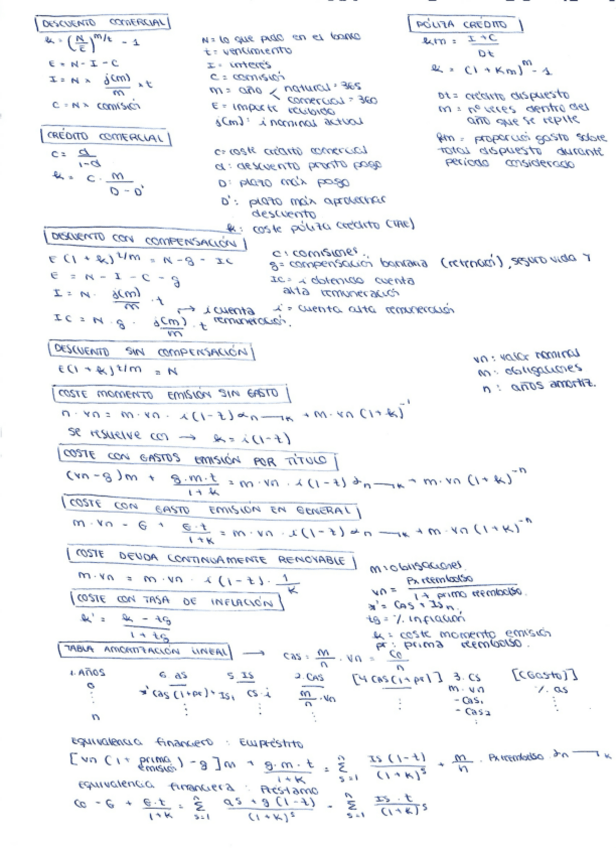 DESCUENTO COMERCIAL
k = (N/E)^m/t - 1
E = N - I - C
I = N × j(m)/m × t
C = N × comisión
N = lo que pido en el banco
t = vencimiento
I = interés
C = comisión
m = año < natural = 365
comercial = 360
E = importe recibido
j(m) = i nominal actual
PÓLIZA CRÉDITO
km = I + C / Dt
k = (1 + km)^m - 1
Dt = crédito dispuesto
m = nº veces dentro del
año que se repite
km = proporción gasto sobre
total dispuesto durante
período considerado
CRÉDITO COMERCIAL
C = d / 1-d
k = C · m / D - D'
C = coste crédito comercial
d = descuento pronto pago
D = plazo máx pago
D' = plazo máx aprovechar
descuento
k = coste póliza crédito (TAE)
DESCUENTO CON COMPENSACIÓN
E (1 + k)^t/m = N - g - IC
E = N - I - C - g
I = N · j(m)/m · t
IC = N · g · j(m)/m · t → i cuenta remuneración
C = comisiones
g = compensación bancaria (retención), seguro vida y
IC = i obtenido cuenta
alta remuneración
i = cuenta alta remuneración
DESCUENTO SIN COMPENSACIÓN
E (1 + k)^t/m = N
vn = valor nominal
m = obligaciones
n = años amortiz.
COSTE MOMENTO EMISIÓN SIN GASTO
n · vn = m · vn · i (1 - t) a n¬k + m · vn (1 + k)^-1
se resuelve con → k = i (1 - t)
COSTE CON GASTOS EMISIÓN POR TÍTULO
(vn - g) m + g · m · t / 1 + k = m · vn · i (1 - t) a n¬k + m · vn (1 + k)^-n
COSTE CON GASTO EMISIÓN EN GENERAL
m · vn - G + G · t / 1 + k = m · vn · i (1 - t) a n¬k + m · vn (1 + k)^-n
COSTE DEUDA CONTINUAMENTE RENOVABLE
m · vn = m · vn · i (1 - t) · 1/k
m = obligaciones
vn = Pr reembolso / 1 + prima reembolso
COSTE CON TASA DE INFLACIÓN
k' = k - tg / 1 + tg
tg = % inflación
k = coste momento emisión
pr = prima reembolso
TABLA AMORTIZACIÓN LINEAL → Cas = m/n · vn = Co/n
1. AÑOS 6. as 5. Is 2. CAS [4 Cas (1 + pr)] 3. Cs [CGasto)]
0 Cas (1 + pr) + Is₁ Cs · i m/n · vn m · vn % as
- Cas₁
n - Cas₂
equivalencia financiero : Empréstito
[vn (1 + prima emisión) - g] m + g · m · t / 1 + k = Σ n s=1 Is (1 - t) / (1 + k)^s + m/n · Pr reembolso a n¬k
equivalencia financiera : Préstamo
Co - G + G · t / 1 + k = Σ n s=1 as + g (1 - t) / (1 + k)^s - Σ n s=1 Is · t / (1 + k)^s